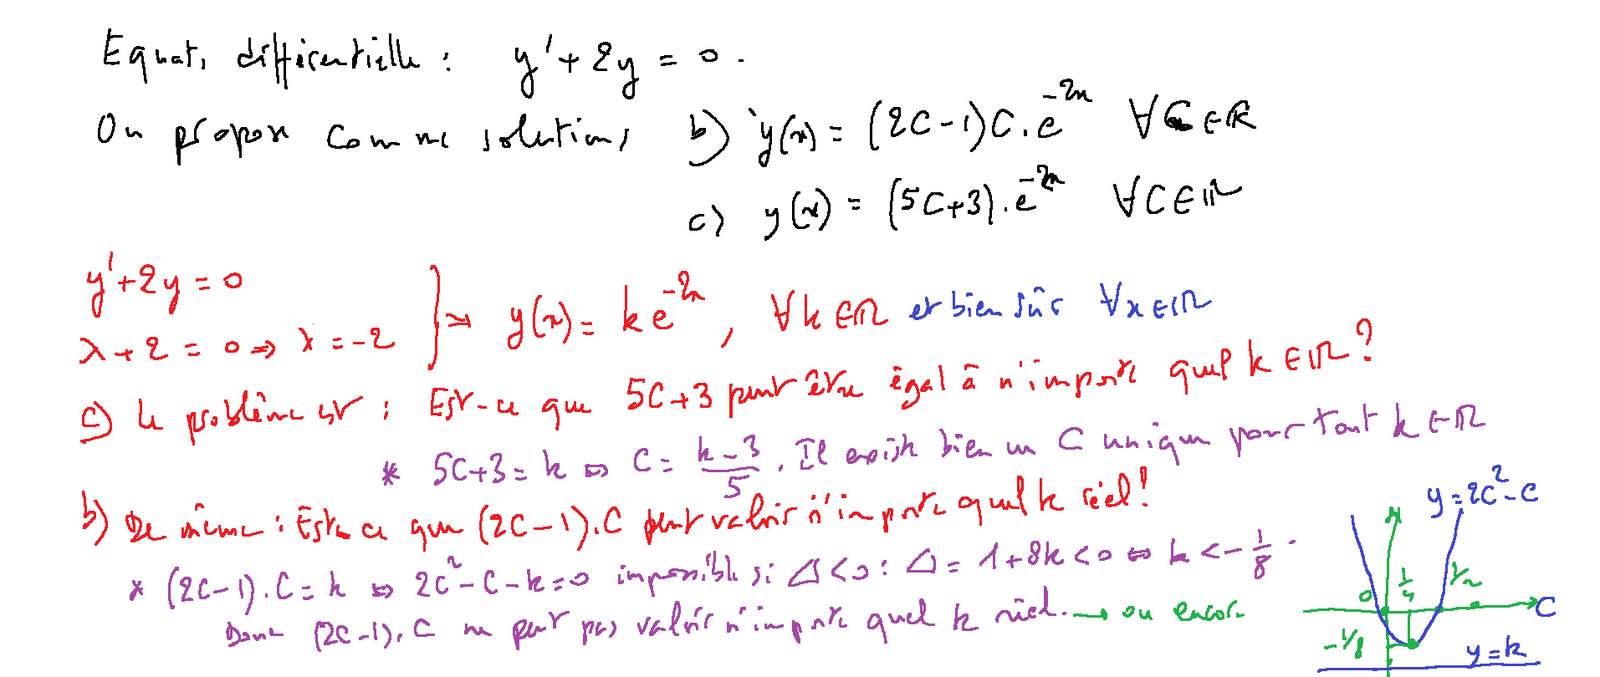 Equat, différentielle : y' + 2y = 0.
On propose comme solutions b) y(x) = (2C-1)C.e^{-2x} ∀C∈ℝ
c) y(x) = (5C+3).e^{-2x} ∀C∈ℝ
y'+2y = 0
λ+2 = 0 ⇒ λ = -2 } ⇒ y(x) = k e^{-2x}, ∀k∈ℝ et bien sûr ∀x∈ℝ
c) Le problème est : Est-ce que 5C+3 peut être égal à n'importe quel k∈ℝ ?
* 5C+3 = k ⇔ C = \frac{k-3}{5}. Il existe bien un C unique pour tout k∈ℝ
b) De même : Est-ce que (2C-1).C peut valoir n'importe quel k réel ?
* (2C-1).C = k ⇔ 2C²-C-k=0 impossible si Δ<0 : Δ = 1+8k<0 ⇔ k<-\frac{1}{8}.
Donc (2C-1).C ne peut pas valoir n'importe quel k réel. → ou encore
y = 2C²-C
0 1/4 1/2 C
-1/8
y=k